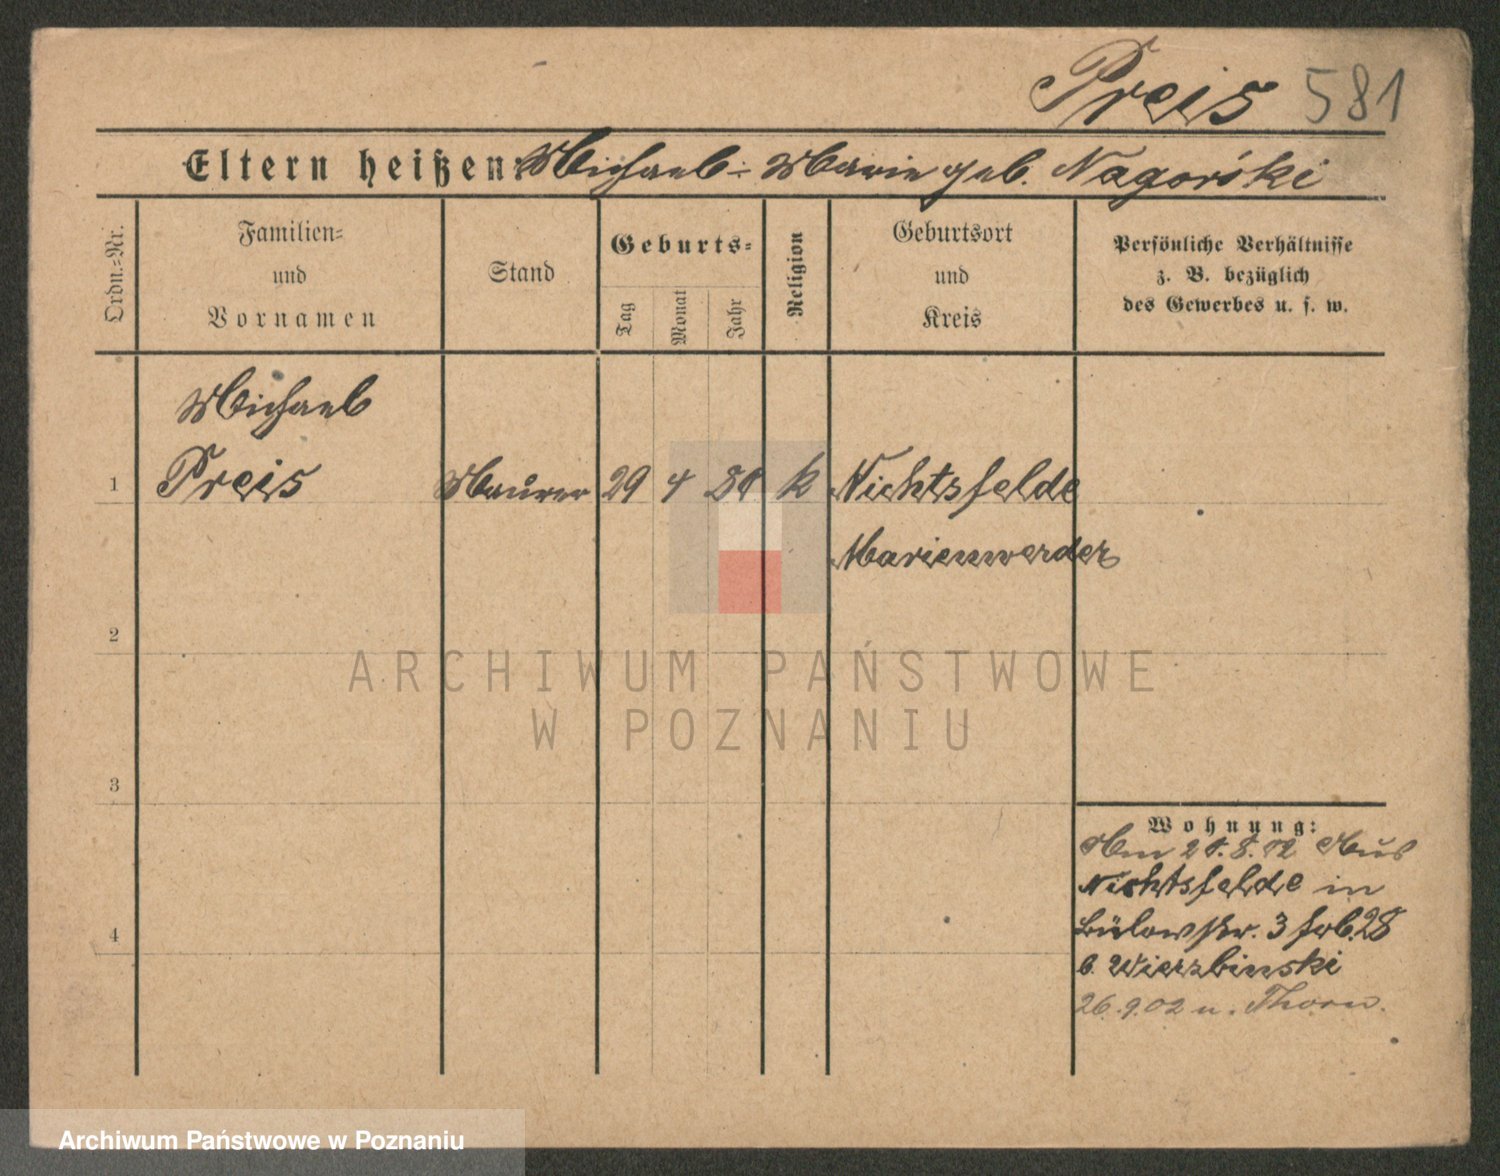 Preis 581
Eltern heißen: Michael - Marie geb. Nagorski
Ordn.-Nr.
Familien-
und
Vornamen
Stand
Geburts-
Tag
Monat
Jahr
Religion
Geburtsort
und
Kreis
Persönliche Verhältnisse
z. B. bezüglich
des Gewerbes u. s. w.
Michael
1 Preis Maurer 29 4 81 k Nichtsfelde
Marienwerder
2
ARCHIWUM PAŃSTWOWE
W POZNANIU
3
Wohnung:
Am 21.8.02 Aus
Nichtsfelde in
Bülowstr. 3
4
b. Wierzbinski
26.9.02 n. Thorn.
Archiwum Państwowe w Poznaniu